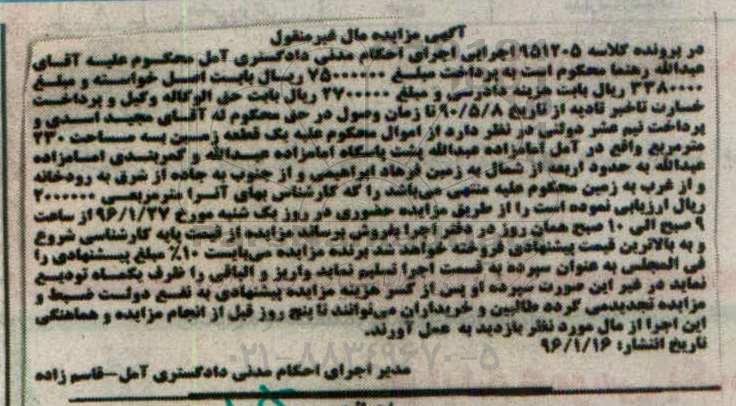 آگهی مزایده مال غیرمنقول
در پرونده کلاسه ۹۵۱۲۰۵ اجرایی اجرای احکام مدنی دادگستری آمل محکوم علیه آقای
عبدالله رهنما محکوم است به پرداخت مبلغ ۷۵۰۰۰۰۰۰۰ ریال بابت اصل خواسته و مبلغ
۳۳۸۰۰۰۰ ریال بابت هزینه دادرسی و مبلغ ۲۷۰۰۰۰۰ ریال بابت حق الوکاله وکیل و پرداخت
خسارت تاخیر تادیه از تاریخ ۹۰/۵/۸ تا زمان وصول در حق محکوم له آقای مجید اسدی و
پرداخت نیم عشر دولتی در نظر دارد از اموال محکوم علیه یک قطعه زمین به مساحت ۲۳۰
مترمربع واقع در آمل امامزاده عبدالله پشت پاسگاه امامزاده عبدالله و کمربندی امامزاده
عبدالله به حدود اربعه از شمال به زمین فرهاد ابراهیمی و از جنوب به جاده از شرق به رودخانه
و از غرب به زمین محکوم علیه منتهی می‌باشد را که کارشناس بهای آنرا مترمربعی ۲۰۰۰۰۰۰
ریال ارزیابی نموده است را از طریق مزایده حضوری در روز یک شنبه مورخ ۹۶/۱/۲۷ از ساعت
۹ صبح الی ۱۰ صبح همان روز در دفتر اجرا بفروش برساند مزایده از قیمت پایه کارشناسی شروع
و به بالاترین قیمت پیشنهادی فروخته خواهد شد برنده مزایده می‌بایست ۱۰٪ مبلغ پیشنهادی را
فی المجلس به عنوان سپرده به قسمت اجرا تسلیم نماید واریز و الباقی را ظرف یکماه تودیع
نماید در غیر این صورت سپرده او پس از کسر هزینه مزایده پیشنهادی به نفع دولت ضبط و
مزایده تجدیدمی گردد طالبین و خریداران می‌توانند تا پنج روز قبل از انجام مزایده و هماهنگی
این اجرا از مال مورد نظر بازدید به عمل آورند.
تاریخ انتشار: ۹۶/۱/۱۶
۰۲۱-۸۸۳۴۹۶۷۰-۵
مدیر اجرای احکام مدنی دادگستری آمل-قاسم زاده